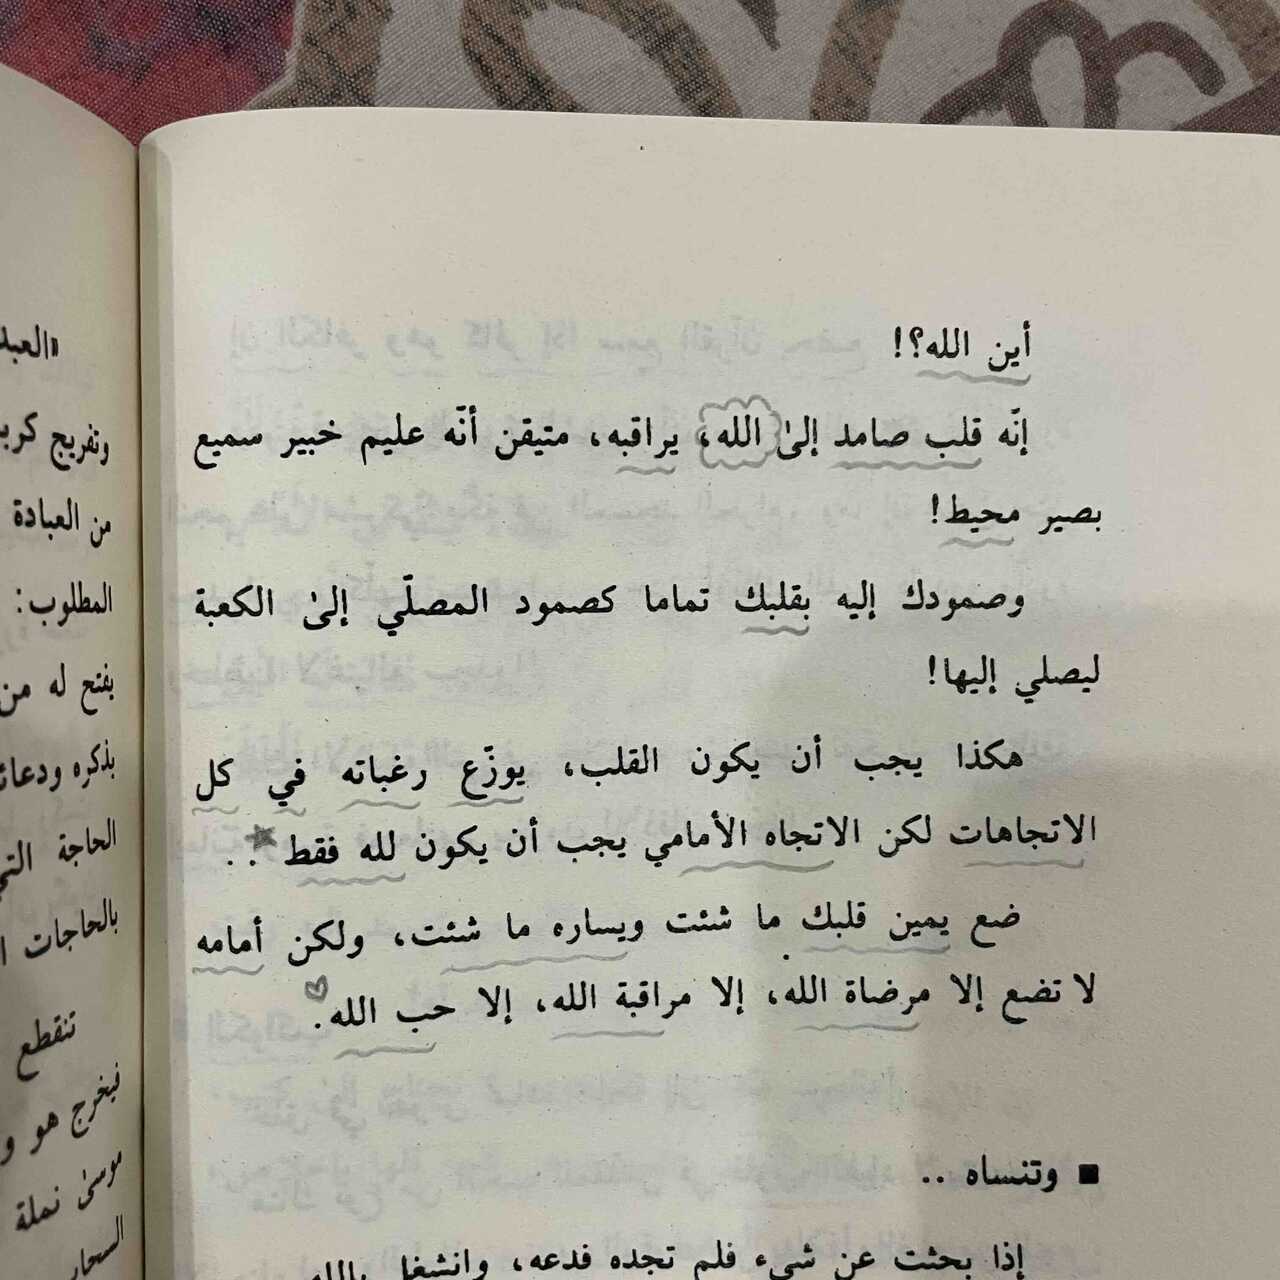 أين الله؟!
إنّه قلب صامد إلىٰ الله، يراقبه، متيقن أنّه عليم خبير سميع
بصير محيط!
وصمودك إليه بقلبك تماما كصمود المصلّي إلىٰ الكعبة
ليصلي إليها!
هكذا يجب أن يكون القلب، يوزّع رغباته في كل
الاتجاهات لكن الاتجاه الأمامي يجب أن يكون لله فقط ..
ضع يمين قلبك ما شئت ويساره ما شئت، ولكن أمامه
لا تضع إلا مرضاة الله، إلا مراقبة الله، إلا حب الله.
■ وتنساه ..
إذا بحثت عن شيء فلم تجده فدعه، وانشغل بالله
وتفريج
من العبادة
المطلوب:
يفتح له من
بذكره
الحاجة
بالحاجات
تنقطع
فيخرج هو
موسىٰ نملة